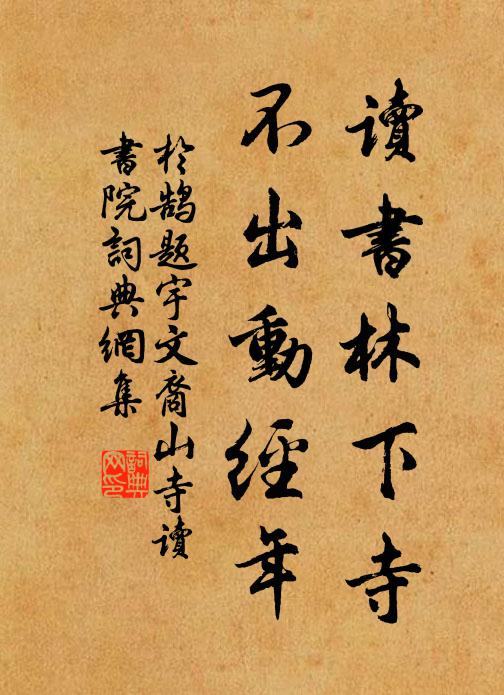 讀書林下寺
不出動經年
於鵠題宇文裔山寺讀
書院詞典網集
詞典
网印